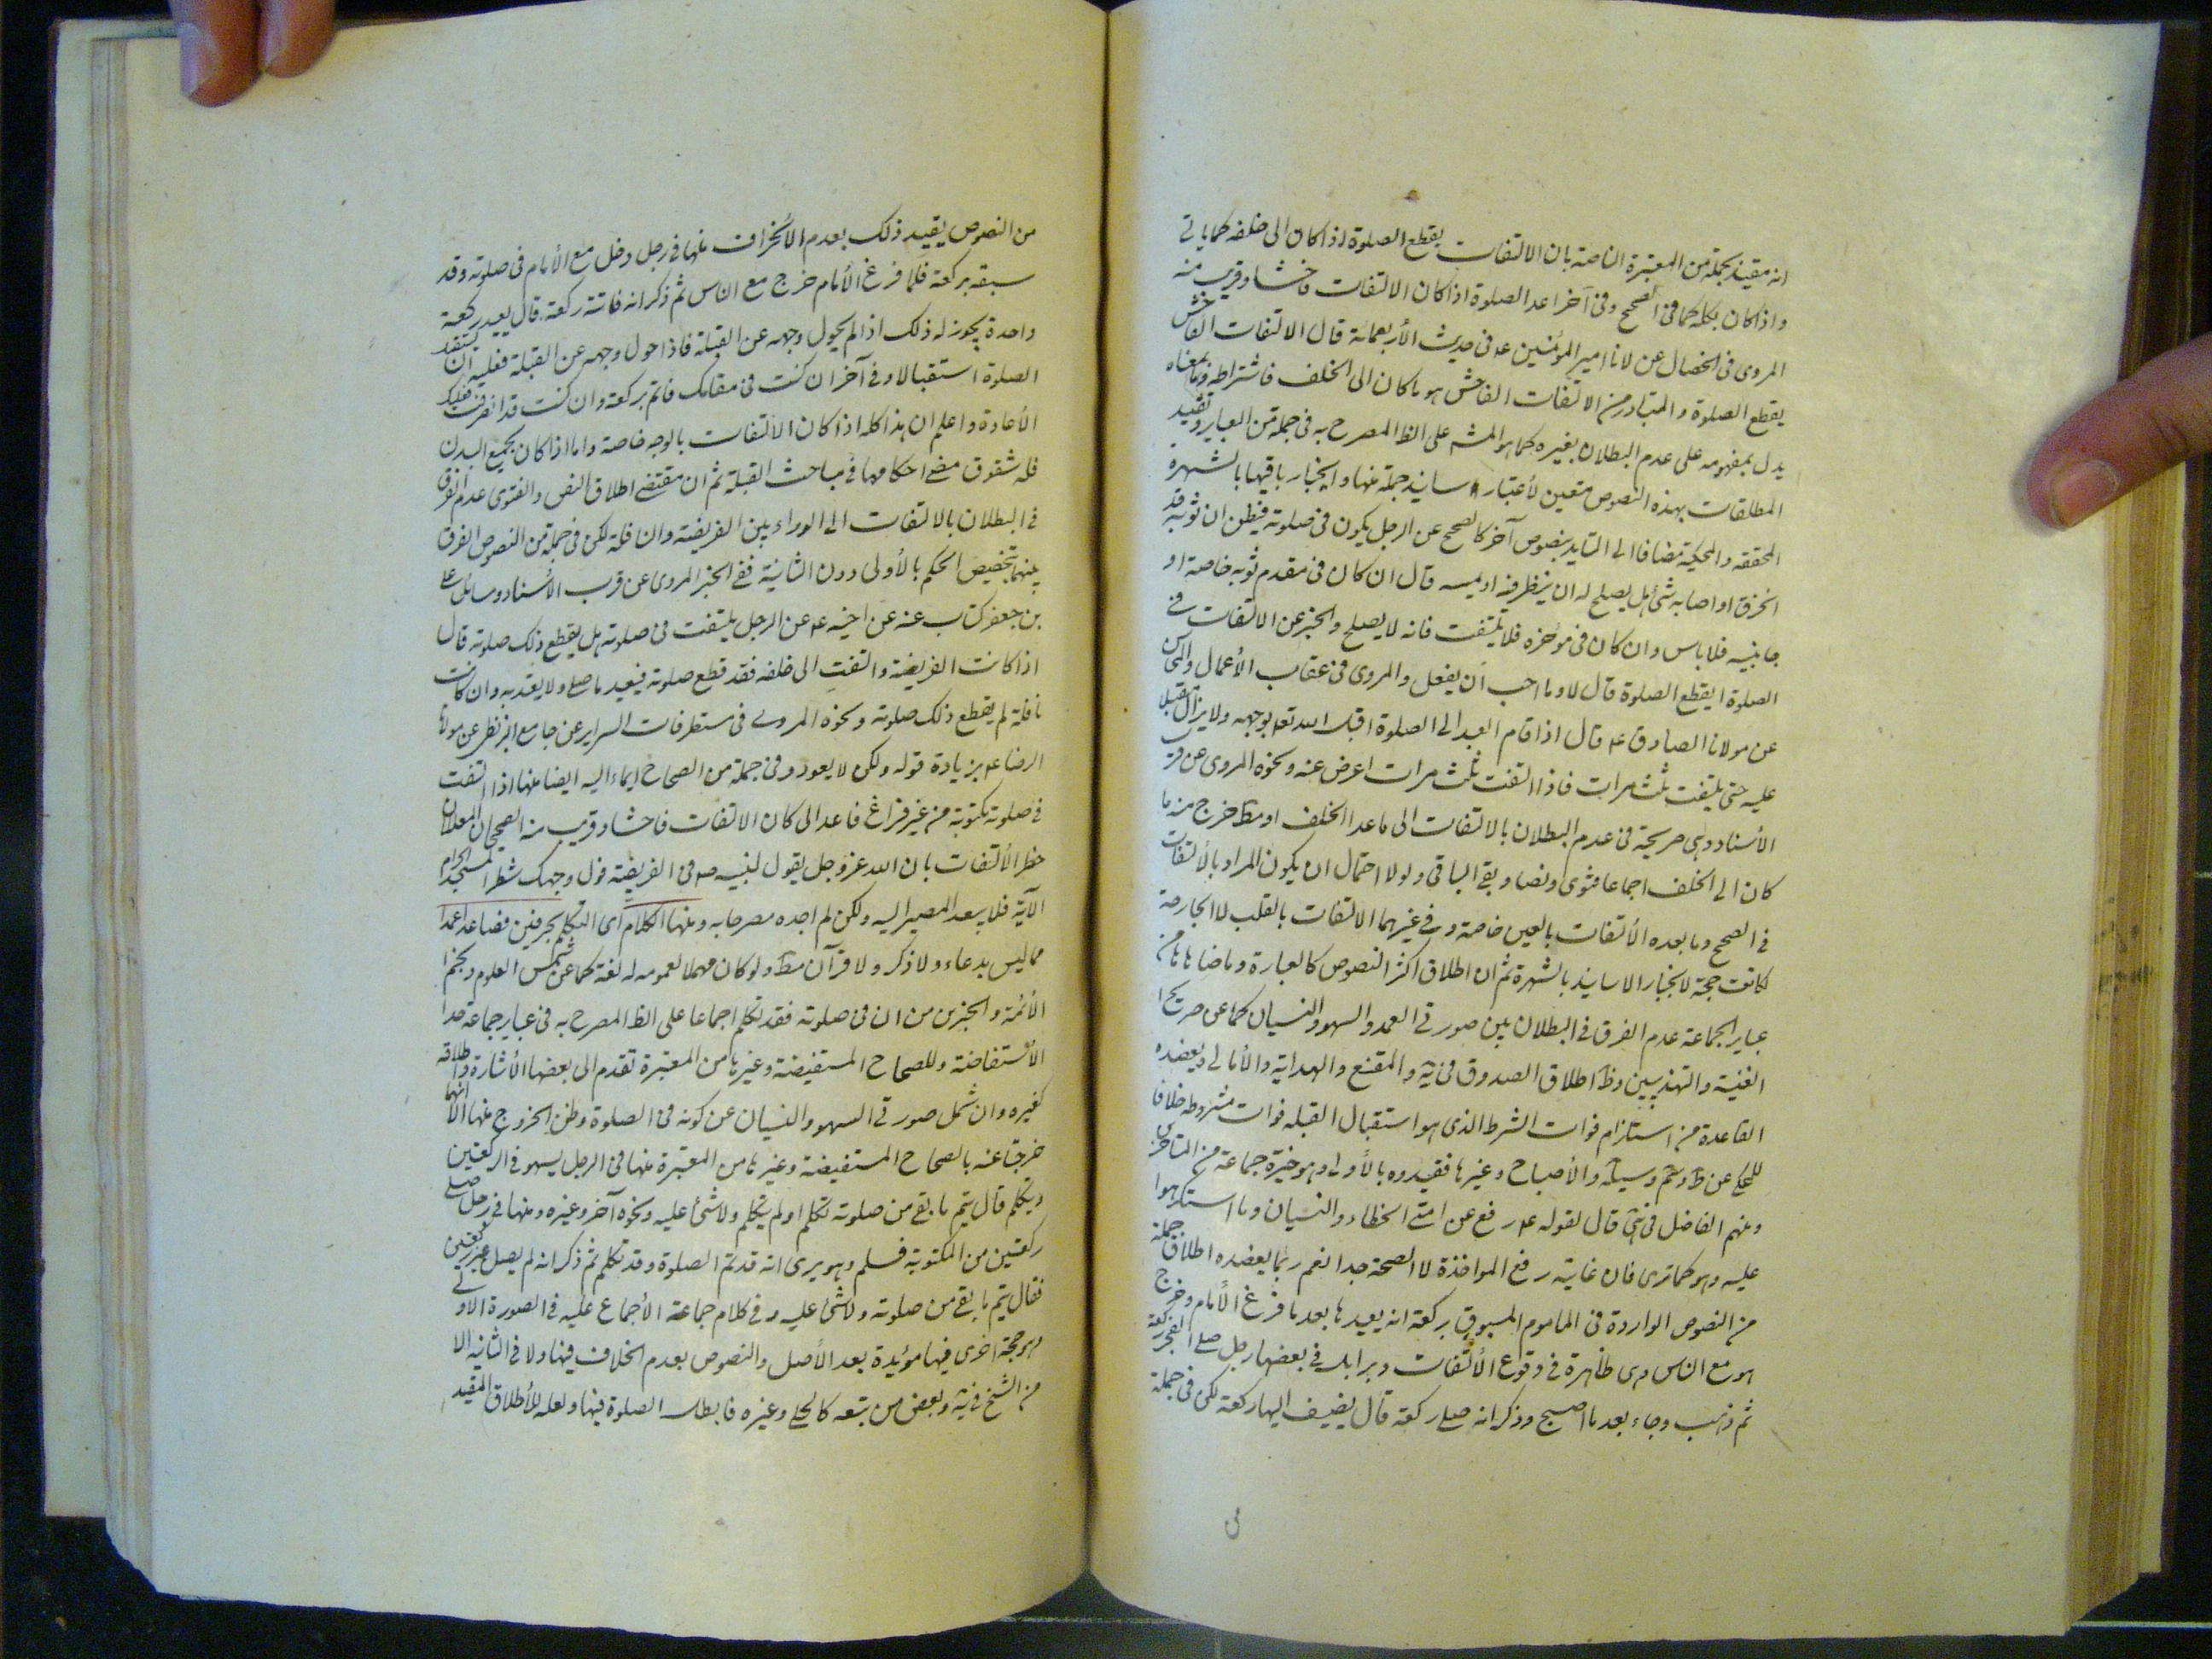 انه مقيد بجملة من المعتبرة الناصة بان الالتفات يقطع الصلوة اذا كان الى خلفه كما ياتي
واذا كان بكله كما في الصحيح وفي آخر اعد الصلوة اذا كان الالتفات فاحشا وقريب منه
المروى في الخصال عن مولانا امير المومنين ع في حديث الأربعمائة قال الالتفات الفاحش
يقطع الصلوة والمتبادر من الالتفات الفاحش هو ما كان الى الخلف فاشتراطه وما بمعناه
يدل بمفهومه على عدم البطلان بغيره كما هو المش على الظ المصرح به في جملة من العباير وتقييد
المطلقات بهذه النصوص متعين لأعتبار اسانيد جملة منها وانجبار باقيها بالشهرة
المحققة والمحكية مضافا الى التايد بنصوص آخر كالصحيح عن الرجل يكون في صلوته فيظن ان ثوبه قد
انخرق او اصابه شئ هل يصلح له ان ينظر فيه او يمسه قال ان كان في مقدم ثوبه خاصة او
جانبيه فلا باس وان كان في موخره فلا يلتفت فانه لا يصلح والخبر عن الالتفات في
الصلوة ايقطع الصلوة قال لا وما احب ان يفعل والمروى في عقاب الأعمال والمحاسن
عن مولانا الصادق ع قال اذا قام العبد الى الصلوة اقبل الله تعه بوجهه ولا يزال مقبلا
عليه حتى يلتفت ثلث مرات فاذا التفت ثلث مرات اعرض عنه ونحوه المروى عن قرب
الأسناد وهي صريحة في عدم البطلان بالالتفات الى ما عدا الخلف او مط خرج منه ما
كان الى الخلف اجماعا فتوى ونصا وبقي الباقي ولولا احتمال ان يكون المراد بالألتفات
في الصحيح وما بعده الألتفات بالعين خاصة وفي غيرهما الالتفات بالقلب لا الجارحة
لكانت حجة لانجبار الاسانيد بالشهرة ثم ان اطلاق اكثر النصوص كالعبارة وما ضاهاها من
عباير الجماعة عدم الفرق في البطلان بين صورتي العمد والسهو والنسيان كما عن صريح
الغنية والتهذيبين وظ اطلاق الصدوق في يه والمقنع والهداية والأمالي ويعضده
القاعدة من استلزام فوات الشرط الذى هو استقبال القبله فوات مشروطه خلافا
للمحكي عن ط وئر وسيلة والأصباح وغيرها فقيدوه بالأول وهو خيرة جماعة من المتاخرين
ومنهم الفاضل في هى قال لقوله ع رفع عن امتي الخطاء والنسيان وما استكرهوا
عليه وهو كما ترى فان غايته رفع المواخذة لا الصحة جدا نعم ربما يعضده اطلاق جملة
من النصوص الواردة في الماموم المسبوق بركعة انه يعيدها بعد ما فرغ الأمام وخرج
هو مع الناس وهى ظاهرة في وقوع الألتفات وبرابل في بعضها رجل صلى الفجر ركعة
ثم ذهب وجاء بعد ما اصبح وذكر انه صلى ركعة قال يضيف اليها ركعة لكن في جملة
من النصوص يقيد ذلك بعدم الأنحراف منها في رجل دخل مع الأمام في صلوته وقد
سبقه بركعة فلما فرغ الأمام خرج مع الناس ثم ذكر انه فاتته ركعة قال يعيد ركعة
واحدة يجوز له ذلك اذا لم يحول وجهه عن القبلة فاذا حول وجهه عن القبلة فعليه ان يستقبل
الصلوة استقبالا وفي آخر ان كنت في مقامك فاتم بركعة وان كنت قد انصرفت فعليك
الأعادة واعلم ان هذا كله اذا كان الألتفات بالوجه خاصة واما اذا كان بجميع البدن
فله شقوق مضى احكامها في مباحث القبلة ثم ان مقتضى اطلاق النص والفتوى عدم الفرق
في البطلان بالالتفات الى الوراء بين الفريضة والنافلة لكن في جملة من النصوص الفرق
بينهما بتخصيص الحكم بالأولى دون الثانية ففي الخبر المروى عن قرب الأسناد ومسائل على
بن جعفر كتاب عنه عن اخيه ع عن الرجل يلتفت في صلوته هل يقطع ذلك صلوته قال
اذا كانت الفريضة والتفت الى خلفه فقد قطع صلوته فيعيد ما صلى ولا يعتد به وان كانت
نافلة لم يقطع ذلك صلوته ونحوه المروى في مستطرفات السراير عن جامع البزنطى عن مولانا
الرضا ع بزيادة قوله ولكن لا يعود وفي جملة من الصحاح ايماء اليه ايضا منها اذا التفت
في صلوة مكتوبة من غير فراغ فاعد الى كان الالتفات فاحشا وقريب منه الصحيحان المعللان
حظر الألتفات بان الله عز وجل يقول لنبيه ص في الفريضة فول وجهك شطر المسجد الحرام
الآية فلا يبعد المصير اليه ولكن لم اجده مصرحا به ومنها الكلام اى التكلم بحرفين فصاعدا عمدا
مما ليس بدعاء ولا ذكر ولا قرآن مط ولو كان مهملا لعمومه له لغة كما عن شمس العلوم ونجم
الأئمة والخبرين من ان في صلوته فقد تكلم اجماعا على الظ المصرح به في عباير جماعة حد
الأستفاضة وللصحاح المستفيضة وغيرها من المعتبرة تقدم الى بعضها الأشارة واطلاقه
كغيره وان شمل صورتي السهو والنسيان عن كونه في الصلوة وظن الخروج منها الا انهما
خرجتا عنه بالصحاح المستفيضة وغيرها من المعتبرة منها في الرجل يسهو في الركعتين
ويتكلم قال يتم ما بقي من صلوته تكلم او لم يتكلم ولا شئ عليه ونحوه آخر وغيره ومنها في رجل صلى
ركعتين من المكتوبة فسلم وهو يرى انه قد تم الصلوة وقد تكلم ثم ذكر انه لم يصل غير ركعتين
فقال يتم ما بقي من صلوته ولا شئ عليه وفي كلام جماعة الأجماع عليه في الصورة الاولى
وهو حجة اخرى فيها مؤيدة بعد الأصل والنصوص بعدم الخلاف فيها ولا في الثانية الا
من الشيخ في يه وبعض من تبعه كالحلي وغيره فابطل الصلوة فيها ولعله للأطلاق المقيد